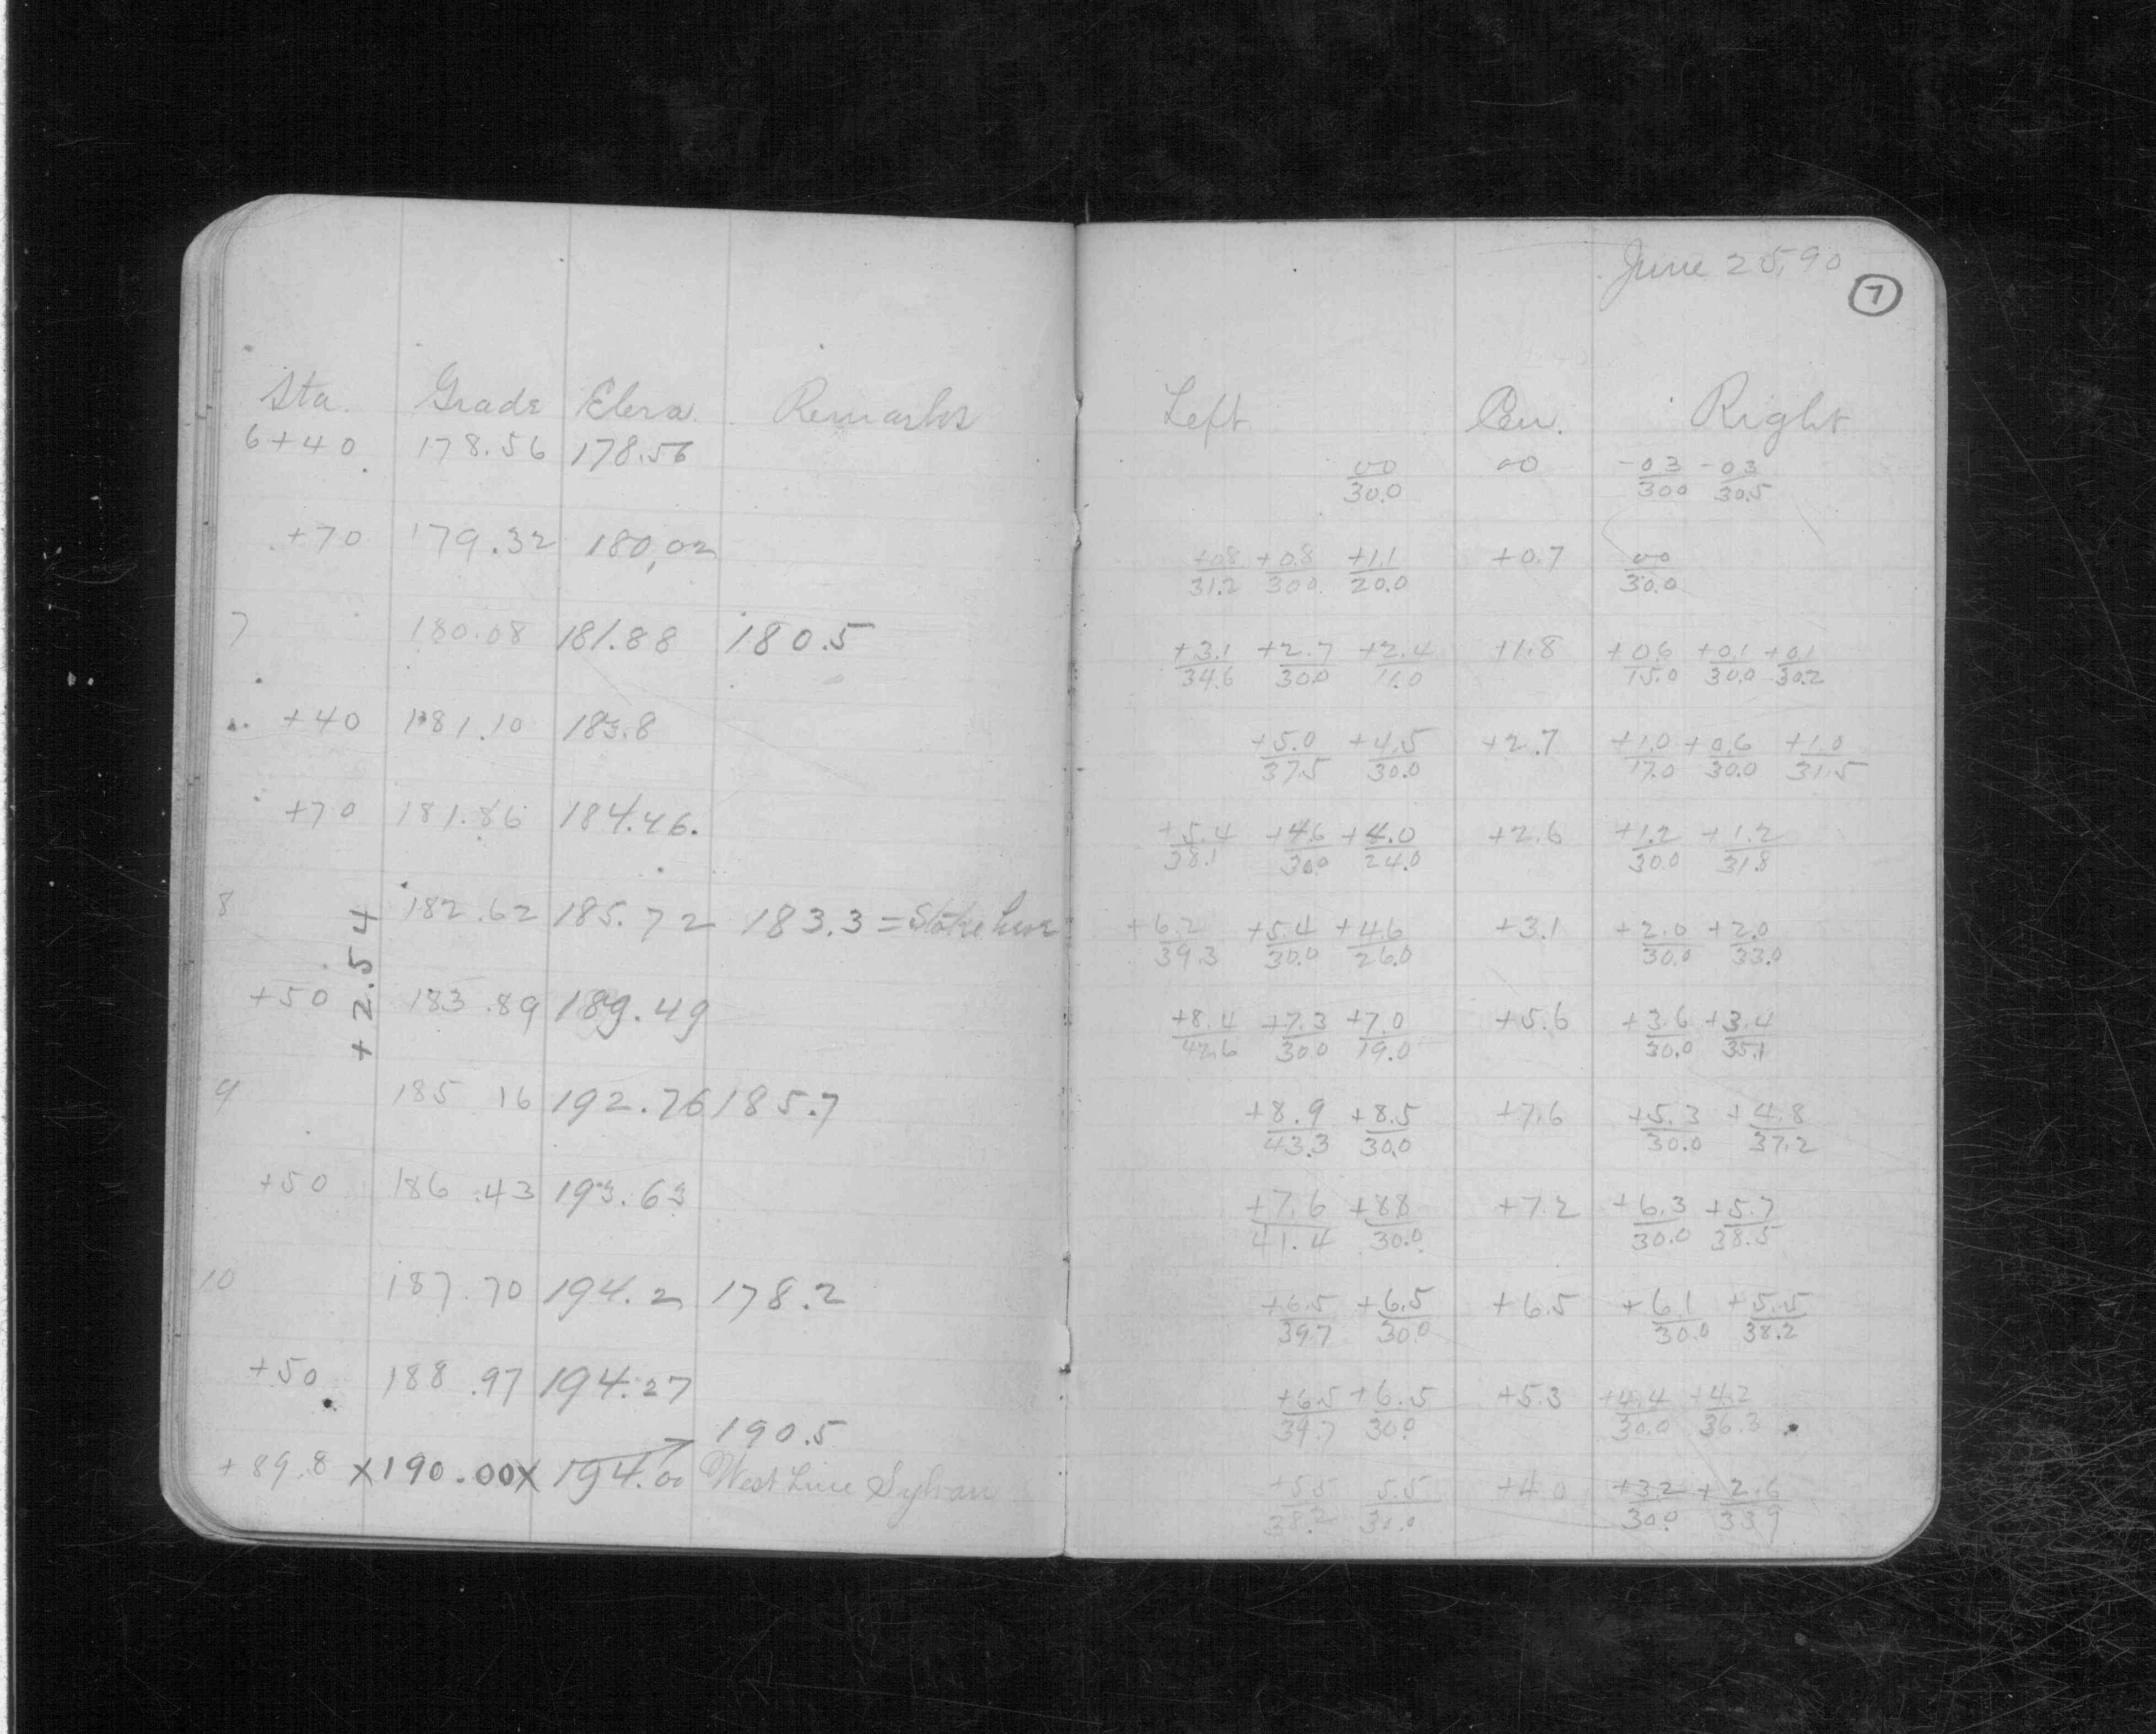 Sta. Grade Eleva. Remarks
6+40 178.56 178.56
+70 179.32 180.02
7 180.08 181.88 180.5
+40 181.10 183.8
+70 181.86 184.46.
8 182.62 185.72 183.3 = Stake Line
+2.54
+50 183.89 189.49
9 185 16 192.76 185.7
+50 186.43 193.63
10 187.70 194.2 178.2
+50 188.97 194.27
190.5
+89.8 x190.00x 194.00 West Line Sylvan
June 25,90
7
Left Cen. Right
00 00 -03 -03
30.0 300 30.5
+08 +0.8 +1.1 +0.7 00
31.2 300. 20.0 30.0
+3.1 +2.7 +2.4 +1.8 +0.6 +0.1 +0.1
34.6 300 11.0 15.0 30.0 30.2
+5.0 +4.5 +2.7 +1.0 +0.6 +1.0
37.5 30.0 17.0 30.0 31.5
+5.4 +4.6 +4.0 +2.6 +1.2 +1.2
38.1 30.0 24.0 30.0 31.8
+6.2 +5.4 +4.6 +3.1 +2.0 +2.0
39.3 30.0 26.0 30.0 33.0
+8.4 +7.3 +7.0 +5.6 +3.6 +3.4
42.6 30.0 19.0 30.0 35.1
+8.9 +8.5 +7.6 +5.3 +4.8
43.3 30.0 30.0 37.2
+7.6 +88 +7.2 +6.3 +5.7
41.4 30.0 30.0 38.5
+6.5 +6.5 +6.5 +6.1 +5.5
39.7 30.0 30.0 38.2
+6.5 +6.5 +5.3 +4.4 +4.2
39.7 30.0 30.0 36.3
+5.5 5.5 +4.0 +3.2 +2.6
38.2 30.0 30.0 33.9